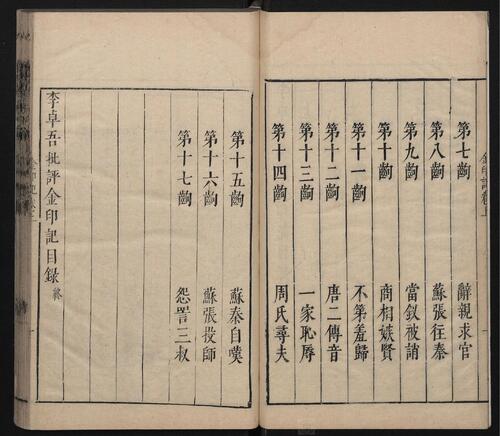 金印記卷上
第七齣 辭親求官
第八齣 蘇張往秦
第九齣 當釵被誚
第十齣 商相嫉賢
第十一齣 不第羞歸
第十二齣 唐二傳音
第十三齣 一家恥辱
第十四齣 周氏尋夫
第十五齣 蘇秦自嘆
第十六齣 蘇張投師
第十七齣 怨詈三叔
李卓吾批評金印記目錄終